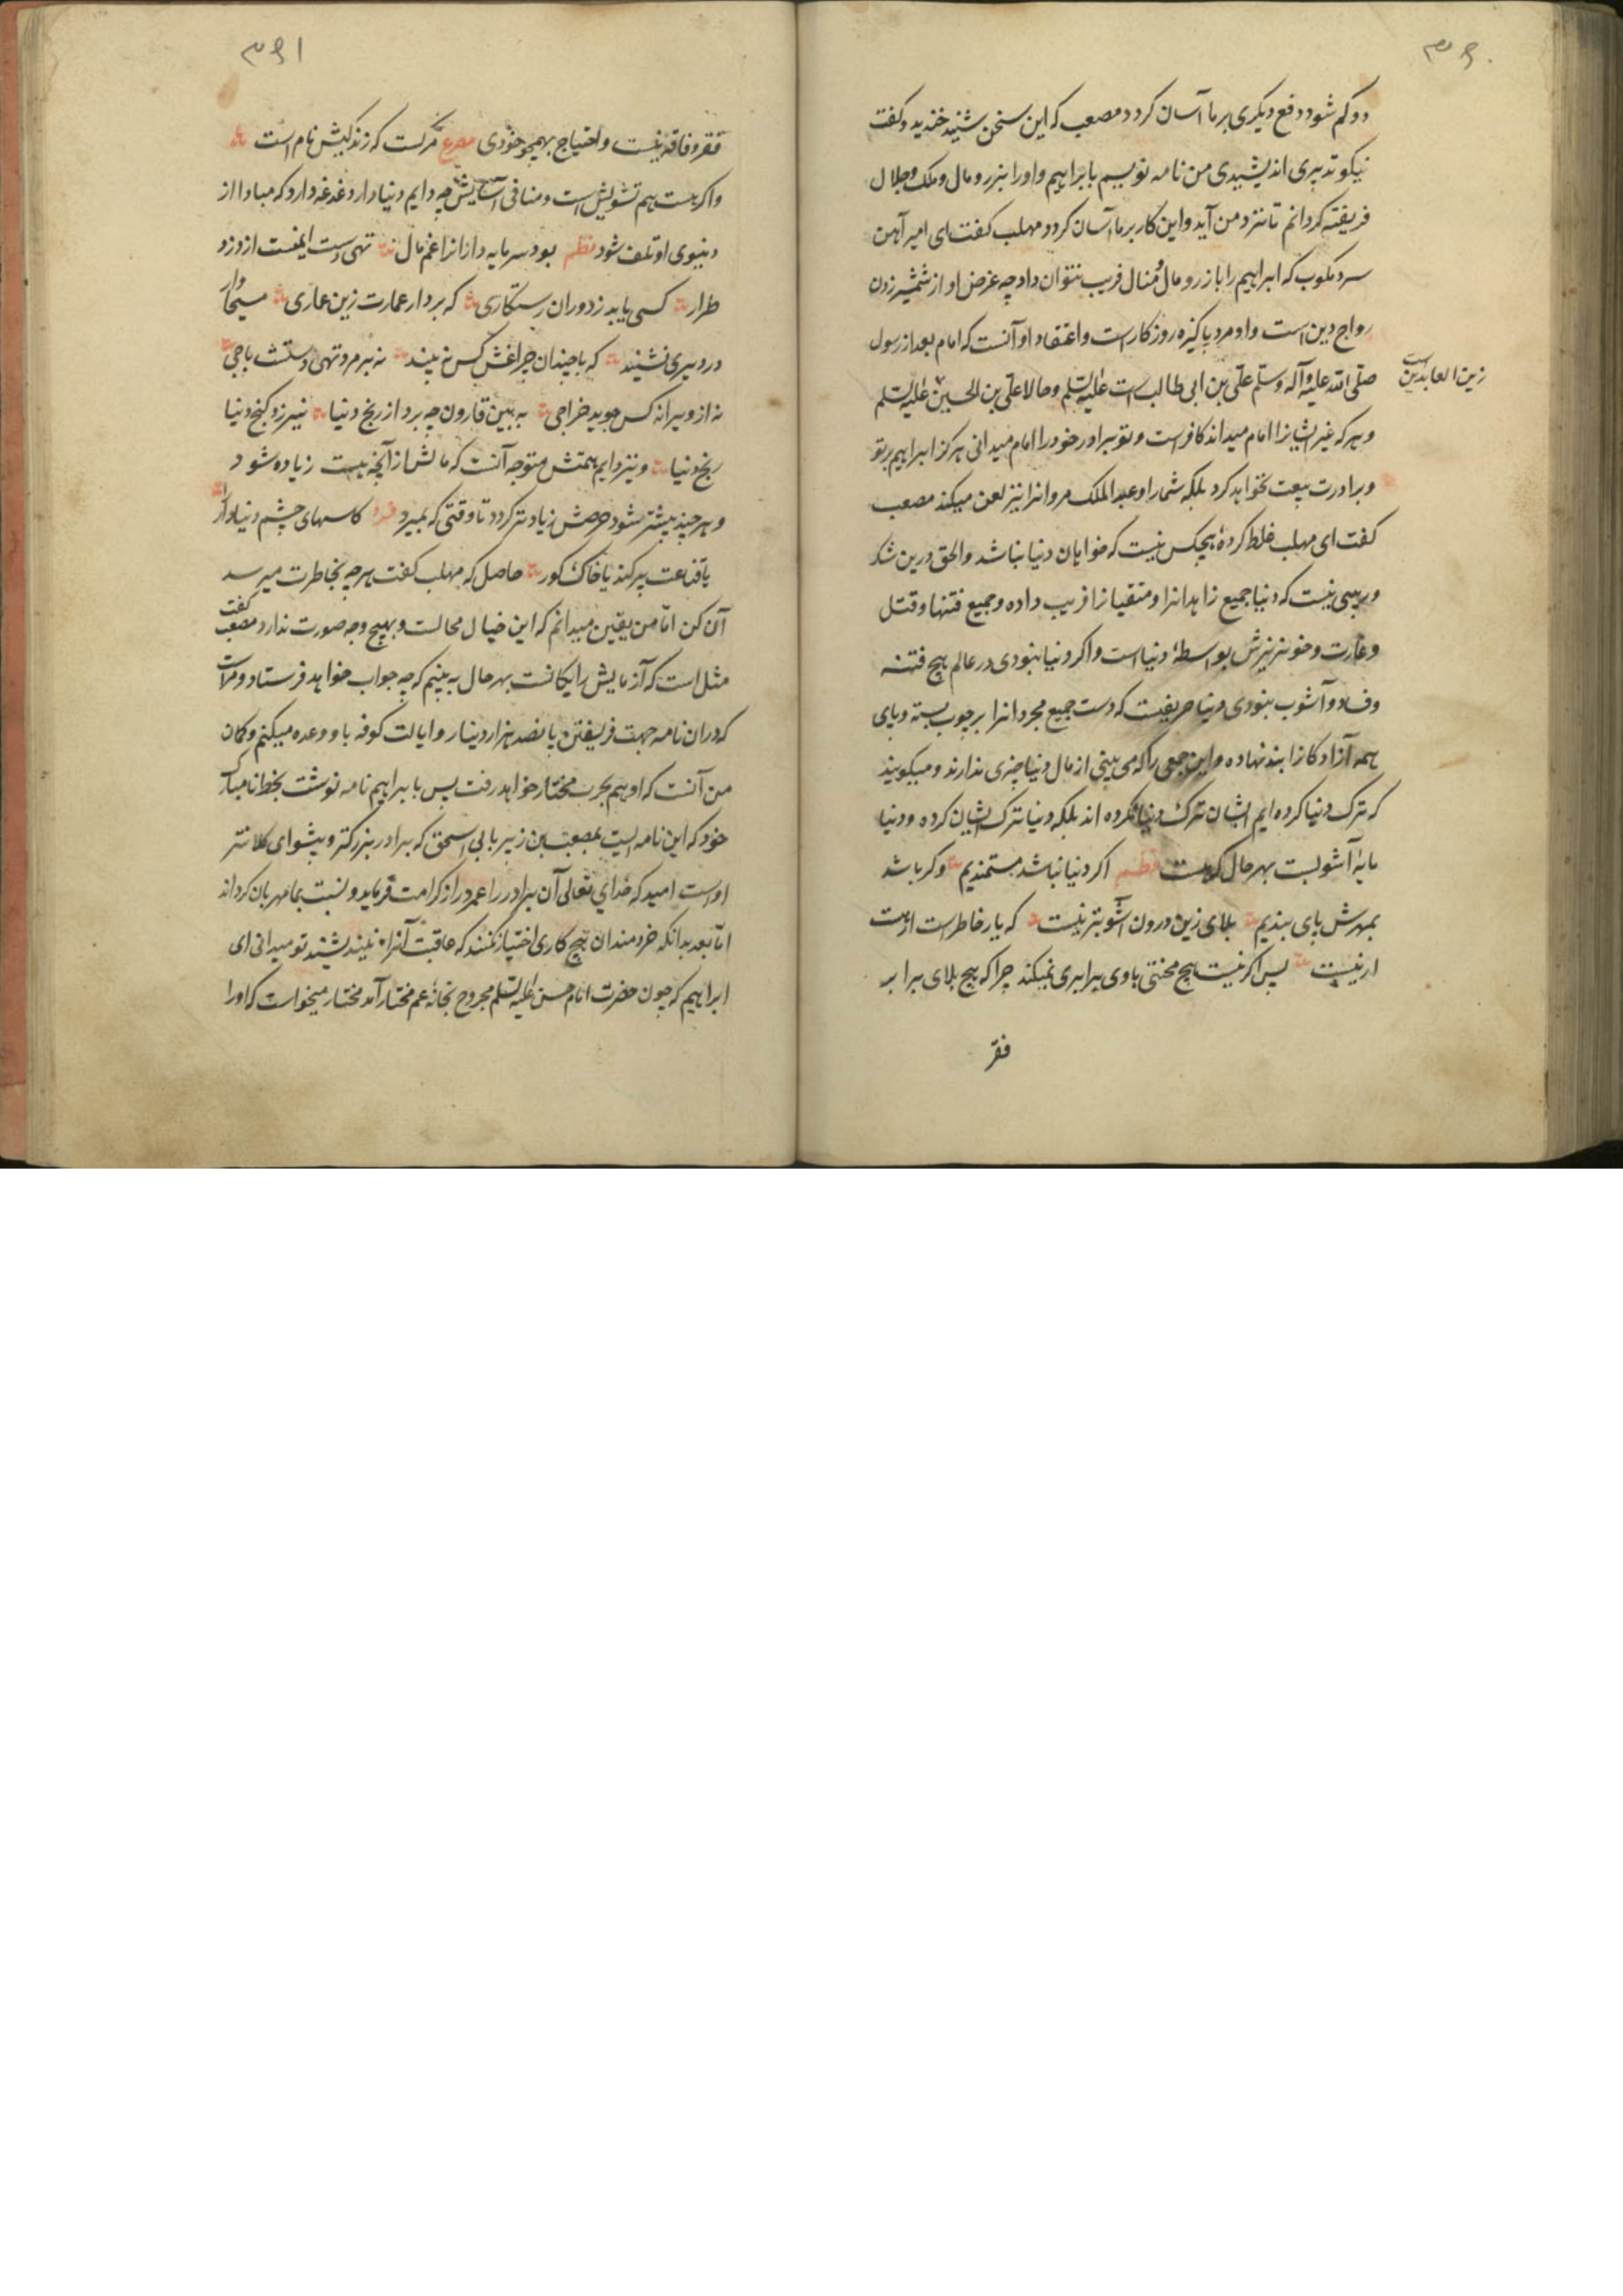 ۳۹۰
دو کم شود دفع دیکری بر ما آسان کردد مصعب که این سخن شنید خندید و کفت
نیکو تدبیری اندیشیدی من نامه نویسم بابراهیم و اورا بزر و مال و ملک و جلال
فریفته کردانم تا نزد من آید و این کار بر ما آسان کردد مهلب کفت ای امیر آهن
سرد مکوب که ابراهیم را با زر و مال و منال فریب نتوان داد چه غرض او از شمشیر زدن
رواج دین است و او مرد پاکیزه روزکار است و اعتقاد او آنست که امام بعد از رسول
صلی الله علیه وآله وسلم علی بن ابی طالب است علیه السلم و حالا علی بن الحسین علیه السلم
زین العابدین است
و هر که غیر ایشانرا امام میداند کافر است و تو برادر خود را امام میدانی هرکز ابراهیم بر تو
و برادرت بیعت نخواهد کرد بلکه شما را و عبد الملک مروانرا نیز لعن میکند مصعب
کفت ای مهلب غلط کرده هیچکس نیست که خواهان دنیا نباشد والحق درین شک
و ریبی نیست که دنیا جمیع زاهدانرا و متقیانرا فریب داده و جمیع فتنها و قتل
و غارت و خونریزش بواسطهٔ دنیا است و اکر دنیا نبودی در عالم هیچ فتنه
و فساد و آشوب نبودی دنیا حریفیست که دست جمیع مجردانرا بر چوب بسته و پای
همه آزادکانرا بند نهاده و این جمعی را که می بینی از مال دنیا چیزی ندارند و میکویند
که ترک دنیا کرده ایم ایشان ترک دنیا نکرده اند بلکه دنیا ترک ایشان کرده و دنیا
مایهٔ آشوبست بهر حال که هست نظم اکر دنیا نباشد مستمندیم وکر باشد
بمهرش پای بندیم بلای زین درون آشوبتر نیست که یار خاطر است ار هست
ار نیست پس اکر نیست هیچ محنتی با وی برابری نمیکند چرا که هیچ بلای برابر
فقر
۳۹۱
فقر و فاقه نیست و احتیاج بهمچو خودی مصرع مرکست که زندکیش نام است
و اکر هست هم تشویش است و منافی آسایش چه دایم دنیادار دغدغه دارد که مبادا از
دنیوی او تلف شود نظم بود سرمایه دارانرا غم مال تهی دست ایمنست از دزد
طرار کسی یابد ز دوران رستکاری که بردار عمارت زین عماری مسیحاوار
در دیری نشیند که با چندان چراغش کس نبیند نه بر مرد تهی دستست باجی
نه از ویرانه کس جوید خراجی به بین قارون چه برد از رنج دنیا نیرزد کنج دنیا
رنج دنیا و نیز دایم همتش متوجه آنست که مالش از آنچه هست زیاده شود
و هر چند بیشتر شود حرصش زیادتر کردد تا وقتی که بمیرد فرد کاسهای چشم دنیادار را
یا قناعت پر کند یا خاک کور حاصل که مهلب کفت هر چه بخاطرت میرسد
آن کن اما من یقین میدانم که این خیال محالست و بهیچ وجه صورت ندارد مصعب کفت
مثل است که آزمایش رایکانست بهر حال به بینم که چه جواب خواهد فرستاد
که دران نامه جهت فریفتن پانصد هزار دینار و ایالت کوفه باو وعده میکنم و کمان
من آنست که او بحرب مختار خواهد رفت پس بابراهیم نامه نوشت بخط نامبارک
خود که این نامه ایست بمصعب بن زبیر بابی اسحق که برادر بزرکتر و پیشوای کلانتر
اوست امید که خدای تعالی آن برادر را عمر دراز کرامت فرماید و نسبت بما مهربان کرداند
اما بعد بدانکه خردمندان هیچ کاری اختیار نکنند که عاقبت آنرا نیندیشند تو میدانی ای
ابراهیم که چون حضرت امام حسن علیه السلم مجروح بخانهٔ عم مختار آمد مختار میخواست که اورا